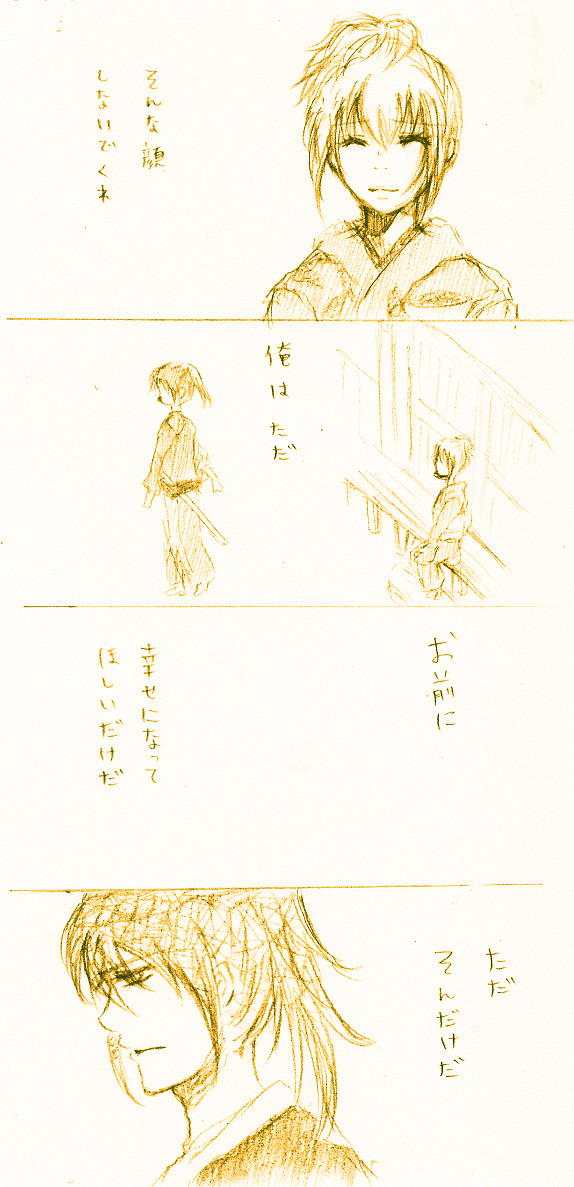 そんな顔
しないでくれ
俺はただ
お前に
幸せになって
ほしいだけだ
ただ
そんだけだ